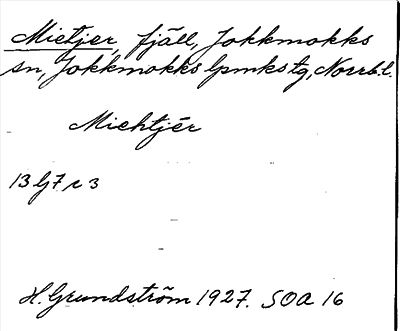 Mietjer, fjäll, Jokkmokks
sn, Jokkmokks lpmks tg, Norrb.l.
Miehtjér
13 G7 c 3
H. Grundström 1927. SOA 16